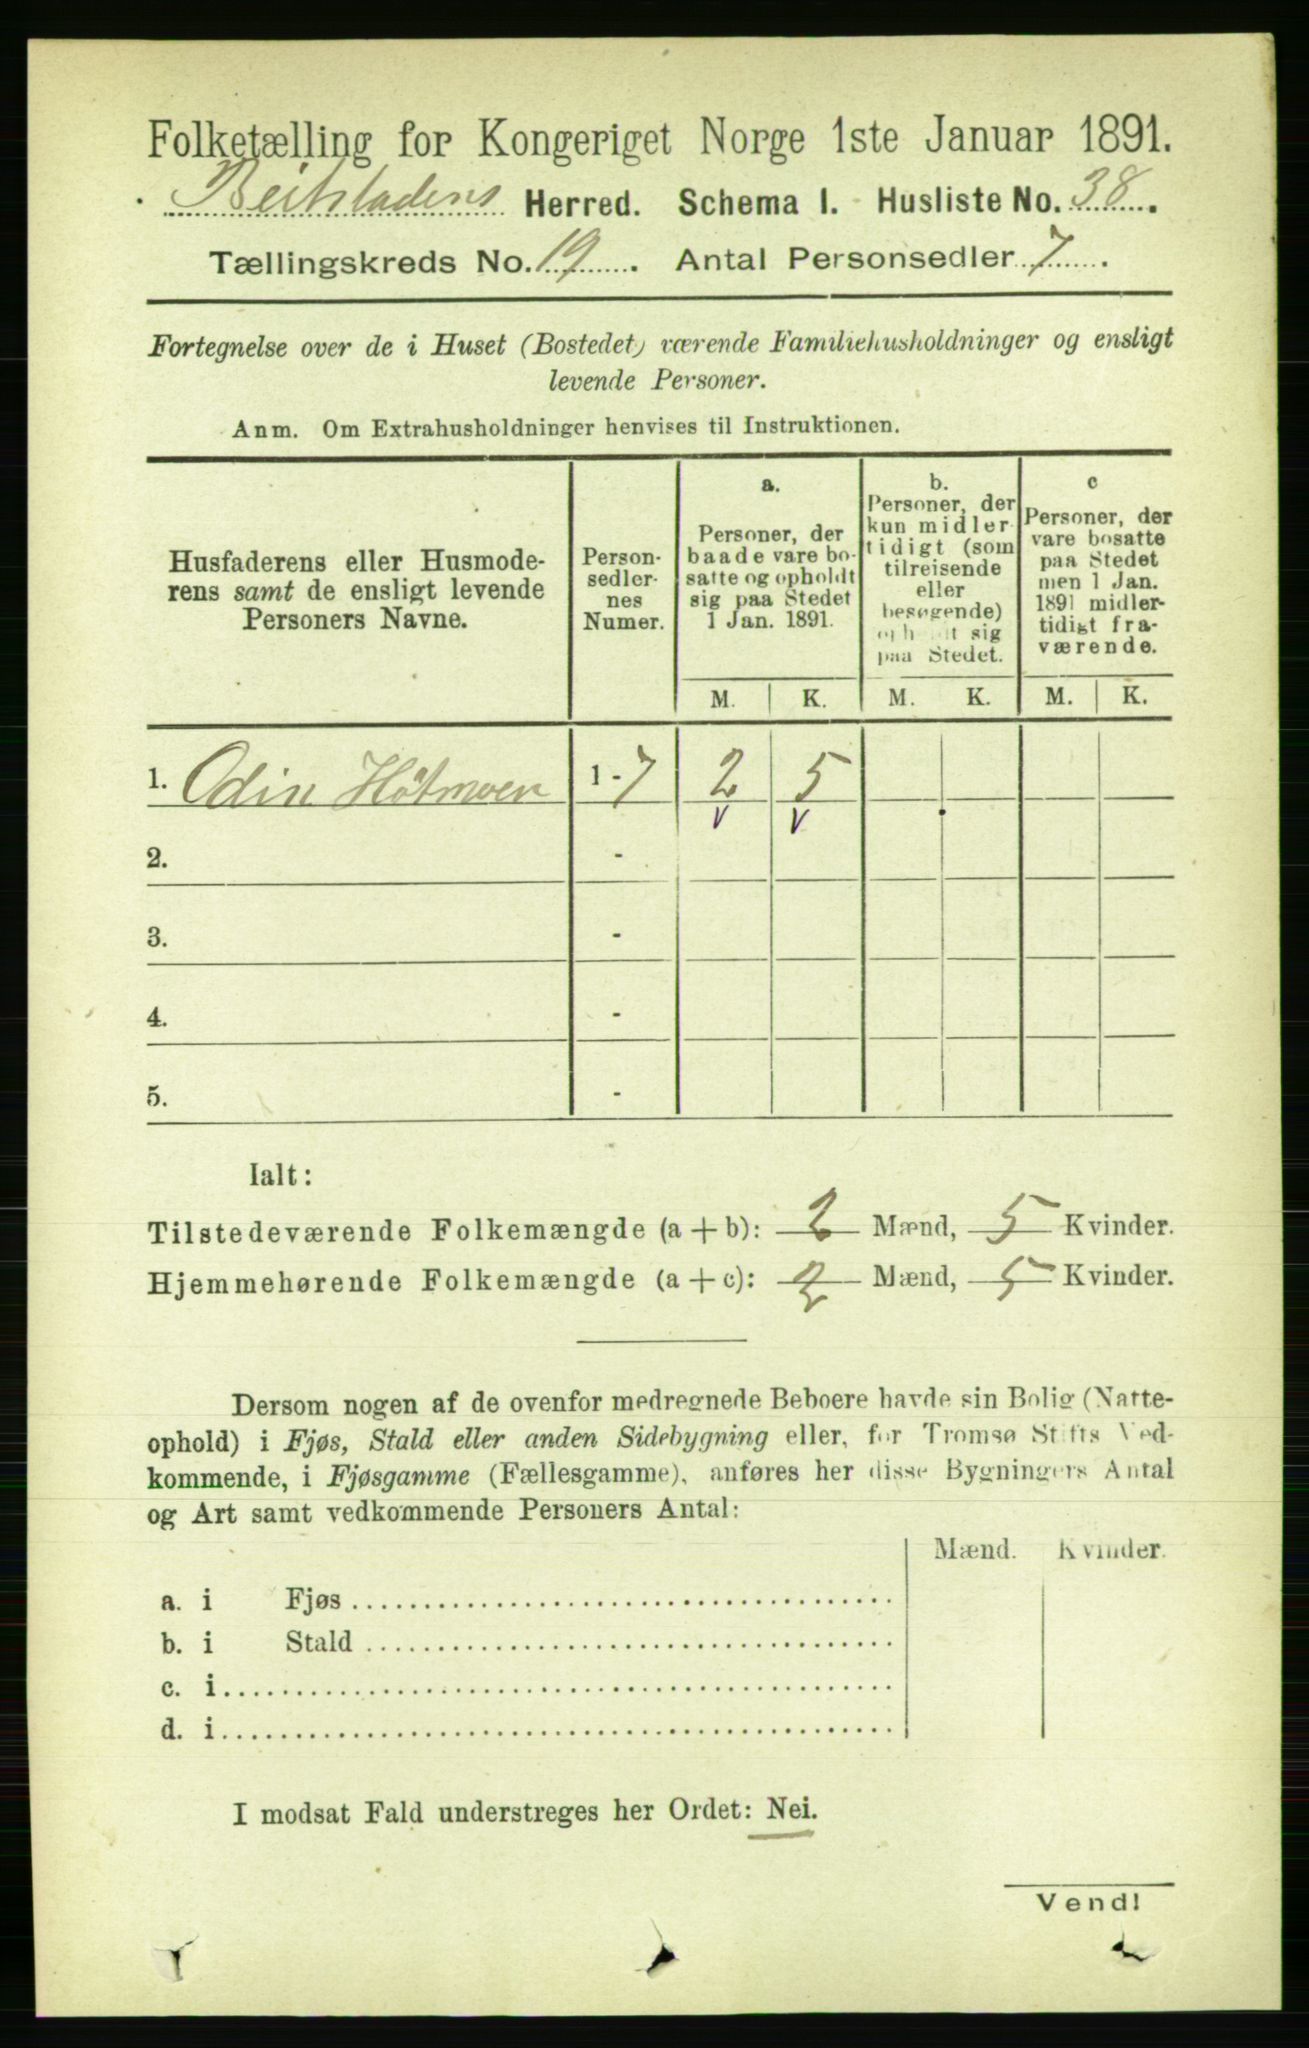 Folketælling for Kongeriget Norge 1ste Januar 1891.
Beitstadens Herred. Schema I. Husliste No. 38.
Tællingskreds No. 19. Antal Personsedler 7.
Fortegnelse over de i Huset (Bostedet) værende Familiehusholdninger og ensligt
levende Personer.
Anm. Om Extrahusholdninger henvises til Instruktionen.
Husfaderens eller Husmode-
rens samt de ensligt levende
Personers Navne.
Person-
sedler-
nes
Numer.
a.
Personer, der
baade vare bo-
satte og opholdt
sig paa Stedet
1 Jan. 1891.
b.
Personer, der
kun midler-
tidigt (som
tilreisende
eller
besøgende)
opholdt sig
paa Stedet.
c
Personer, der
vare bosatte
paa Stedet
men 1 Jan.
1891 midler-
tidigt fra-
værende.
M. K. M. K. M. K.
1. Odin Hötmoen 1-7 2 5
v v
2. -
3. -
4. -
5. -
Ialt:
Tilstedeværende Folkemængde (a + b): 2 Mænd, 5 Kvinder.
Hjemmehørende Folkemængde (a + c): 2 Mænd, 5 Kvinder.
Dersom nogen af de ovenfor medregnede Beboere havde sin Bolig (Natte-
ophold) i Fjøs, Stald eller anden Sidebygning eller, for Tromsø Stifts Ved-
kommende, i Fjøsgamme (Fællesgamme), anføres her disse Bygningers Antal
og Art samt vedkommende Personers Antal:
Mænd. Kvinder.
a. i Fjøs
b. i Stald
c. i
d. i
I modsat Fald understreges her Ordet: Nei.
Vend!